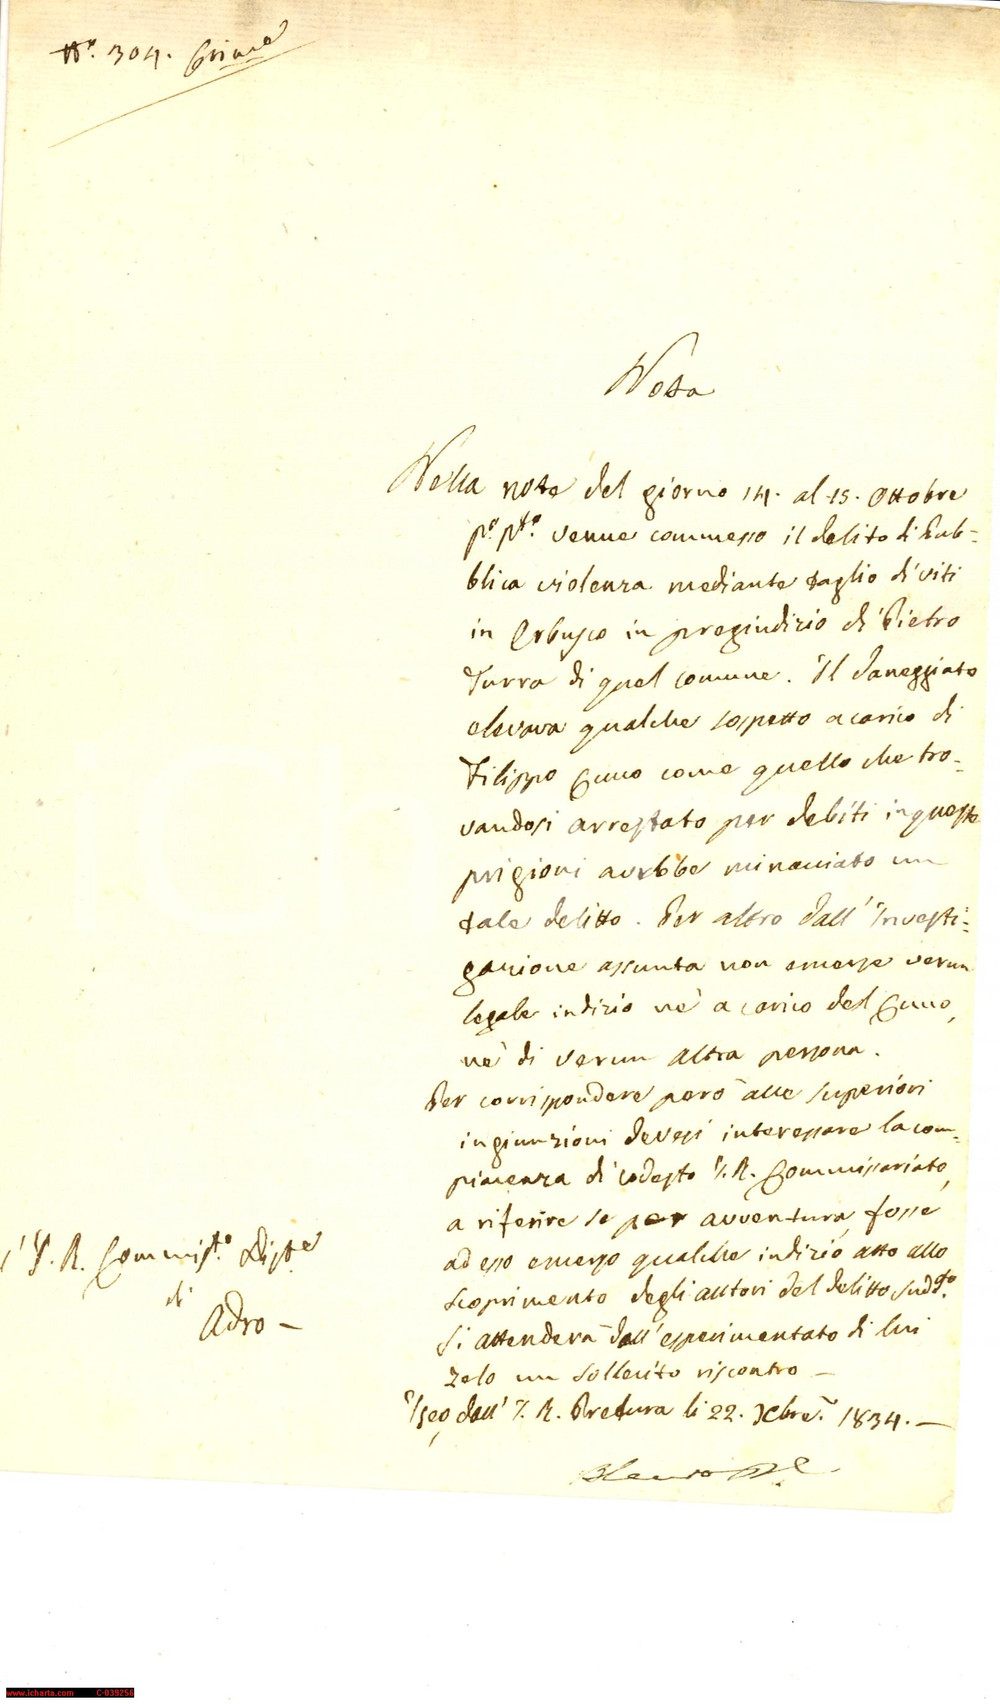 N.° 304. Crim.e
Nota
Nella note del giorno 14. al 15. Ottobre
p.° p.to venne commesso il delito di Pub-
blica violenza mediante taglio di viti
in Erbusco in pregiudizio di Pietro
Turra di quel comune. Il daneggiato
elevava qualche sospetto a carico di
Filippo Cuno come quello che tro-
vandosi arrestato per debiti in queste
prigioni avrebbe minacciato un
tale delitto. Per altro dall'Investi-
gazione assunta non emerse verun
legale indizio nè a carico del Cuno,
nè di verun altra persona.
Per corrispondere però alle superiori
ingiunzioni devesi interessare la com-
piacenza di codesto I. R. Commissariato,
a riferire se per avventura fosse
ad esso emerso qualche indizio atto allo
scoprimento degli auttori del delitto sudd.to
Si attenderà dall'esperimentato di lui
zelo un sollecito riscontro —
Iseo, dall'I. R. Pretura li 22. Xbre. 1834. —
I. R. Commiss.° Dist.e
di
Adro —
www.icharta.com C-039256